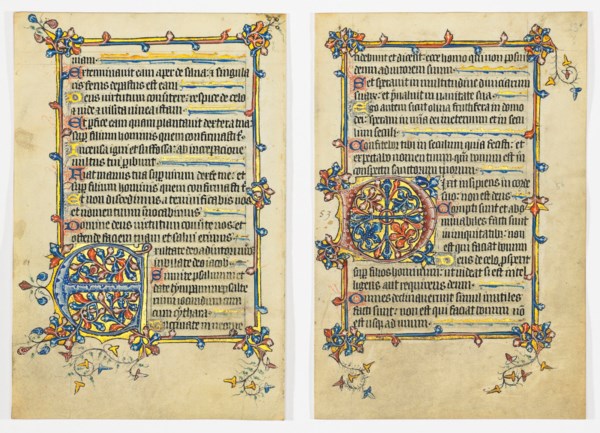 uiam:
Exterminauit eam aper de silua: et singula
ris ferus depastus est eam:
Deus uirtutum conuertere: respice de celo
et uide: et uisita uineam istam:
Et perfice eam quam plantauit dextera tua:
et sup filium hominis quem confirmasti t
Incensa igni et suffossa: ab increpatione
uultus tui peribunt:
Fiat manus tua sup uirum dextere tue: et
sup filium hominis quem confirmasti t
Et non discedimus a te: uiuificabis nos
et nomen tuum inuocabimus
Domine deus uirtutum conuerte nos: et
ostende faciem tuam et salui erimus:
Exultate deo adiutori nostro
iubilate deo iacob:
Sumite psalmum et
date tympanum: psalte
rium iocundum cum
cythara
Buccinate in neome
debunt et dicent: ecce homo qui non posuit
deum adiutorem suum:
Et sperauit in multitudine diuitiarum
suarum: et preualuit in uanitate sua:
Ego autem sicut oliua fructifera in domo
dei: speraui in mia dei in eternum et in secu
lum seculi:
Confitebor tibi in seculum quia fecisti: et
expectabo nomen tuum qm bonum est in
conspectu sanctorum tuorum:
Dixit insipiens in corde
suo: non est deus:
Corrupti sunt et abho
minabiles facti sunt
in iniquitatibus: non
est qui faciat bonum
Deus de celo prospexit
sup filios hominum: ut uideat si est intel
ligens aut requirens deum:
Omnes declinauerunt simul inutiles
facti sunt: non est qui faciat bonum non
est usq ad unum: